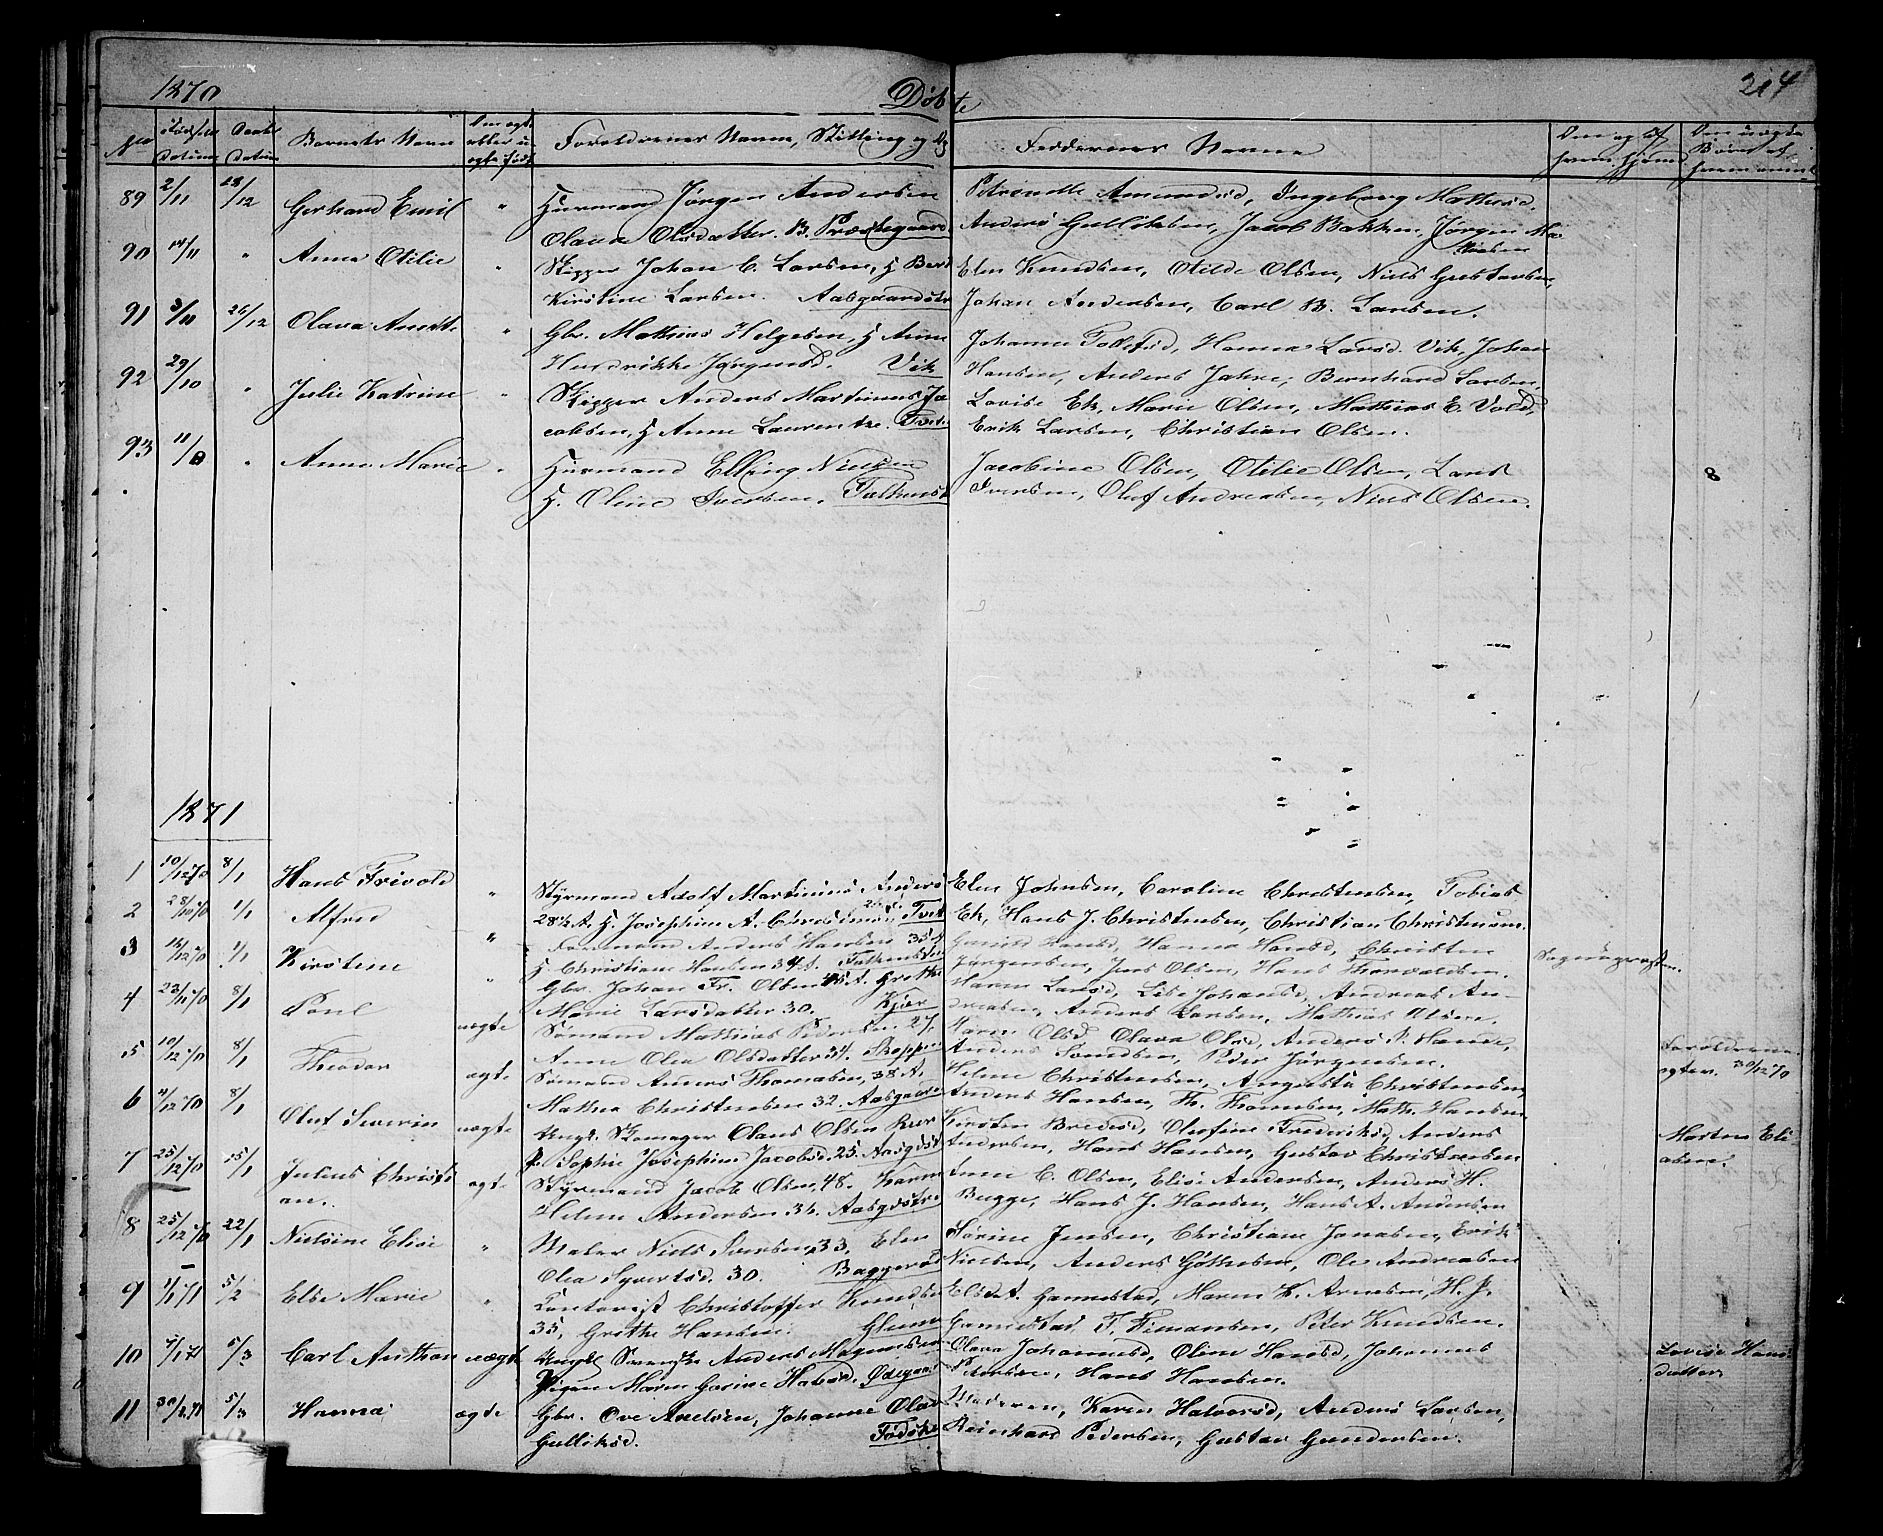 1870
Døbte
214
No
Fødsels Datum
Daabs Datum
Barnets Navn
Om ægte eller uægte født
Forældrenes Navne, Stilling og
Faddernes Navne
89 2/11 18/12 Gerhard Emil " Huusmand Jørgen Andersen
Olava Olsdatter. B. Præstegaard.
Petronelle Amundsd, Ingeborg Mathisd.
Anders Gulliksen, Jacob Bakken, Jørgen
90 14/11 " Anna Otilie " Skipper Johan C. Larsen, H Bert
Kirstine Larsen. Aasgaardstr
Elen Knudsen, Otilde Olsen, Niels Gustavsen,
Johan Andersen, Carl B. Larsen.
91 3/11 26/12 Olava Amst. " Gbr. Mathias Helgesen, H Anne
Hendrikke Jørgensd. Vik
Johanne Tollefsd, Hanna Larsd. Vik, Johan
Hansen, Anders Jahre, Bernhard Larsen,
92 29/10 " Julie Katrine " Skipper Anders Martinius Ja
cobsen, H Anne Laurentze. Tvet.
Lovise Ek, Marie Olsen, Mathias E. Vold,
Erik Larsen, Christian Olsen.
93 " Anna Marie " Huusmand Elling Nielsen
H. Oline Iversen. Falkenst
Jacobine Olsen, Otilie Olsen, Lars
Iversen, Oluf Andreasen, Niels Olsen.
8
1871
1 10/12 70 8/1 Hans Trivold " Styrmand Adolf Martinius Anders
28½ A. H Josephine A. Christensen Tvet
Elen Johnsen, Caroline Christensen, Tobias
Ek, Hans J. Christensen, Christian Christensen.
2 28/10 70 1/1 Alfred " Formand Anders Hansen 35 A
H Christiane Hansen 34 A. Falkensten
Hansd, Hanna Hansd, Christen
Jørgensen, Jens Olsen, Hans Thorvaldsen.
3 16/12 70 1/1 Kirstine " Gbr. Johan Fr. Olsen 45 A. Grethe
Marie Larsdatter 30. Kjær
Maren Larsd, Lise Johansd, Andreas An-
dreasen, Anders Larsen, Mathias Olsen.
4 23/11 70 8/1 Poul uægte Sømand Mathias Pedersen 27,
Anne Olea Olsdatter 34. Skoppe
Maren Olsd Olava Olsd, Anders N. Hanse,
Anders Svendsen, Peder Jørgensen.
5 10/12 70 8/1 Theodor ægte Sømand Anders Thomasen, 38 A,
Mathea Christensen 32. Aasgaard
Helene Christensen, Augusta Christensen,
Anders Hansen, Th. Thomesen, Math. Hansen
Forældrene
ægtev. 30/12 70
6 4/12 70 8/1 Oluf Severin uægte Ungk. Skomager Olaus Olsen
P. Sophie Josephine Jacobsd. 25. Aasgdstr
Kirsten Bredesd, Olufine Frederiksd, Anders
Andersen, Hans Hansen, Gustav Christensen
7 25/12 70 15/1 Julius Christi
an. ægte Styrmand Jacob Olsen, 48. Karen
Helene Andersen 34. Aasgdstr
Anne C. Olsen, Elise Andersen, Anders H.
Bugge, Hans J. Hansen, Hans A. Andersen
8 25/12 70 22/1 Nielsine Elise " Maler Niels Iversen, 33, Elen
Olea Syvertsd. 30. Baggerød
Sørine Jensen, Christiane Jonasen, Erik
Nielsen, Anders Gøthesen, Ole Andreasen
9 1/1 71 5/2 Else Marie " Kontorist Christoffer Knudsen
35, Grethe Hansen. Glenne
Elise A. Gannestad, Maren K. Arnesen, H. J.
Gannestad, T. Simonsen, Peter Knudsen.
10 7/1 71 5/3 Carl Anthon uægte Ungk. Svenske Anders Magnussen
Pigen Maren Gorine Halvorsd. Ødegaard
Olava Johannesd, Oline Hansd, Johannes
Petersen, Hans Hansen.
Lovise Hans
datter
11 30/1 71 5/3 Hanna ægte Gbr. Ove Axelsen, Johanne Olea
Gulliksd. Fodske
Moderen, Karen Halvorsd, Anders Larsen,
Reinhard Pedersen, Gustav Gundersen.